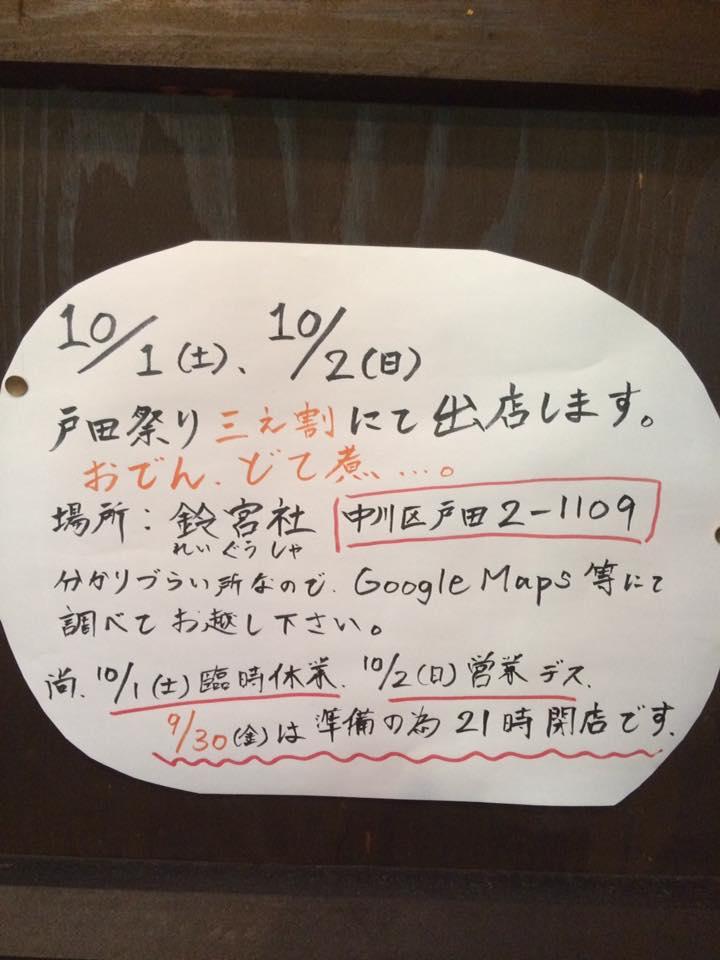 10/1(土)、10/2(日)
戸田祭り三之割にて出店します。
おでん、どて煮…。
場所：鈴宮社 中川区戸田2-1109
れいぐうしゃ
分かりづらい所なので、Google Maps等にて
調べてお越し下さい。
尚、10/1(土)臨時休業、10/2(日)営業デス、
9/30(金)は準備の為21時開店です、